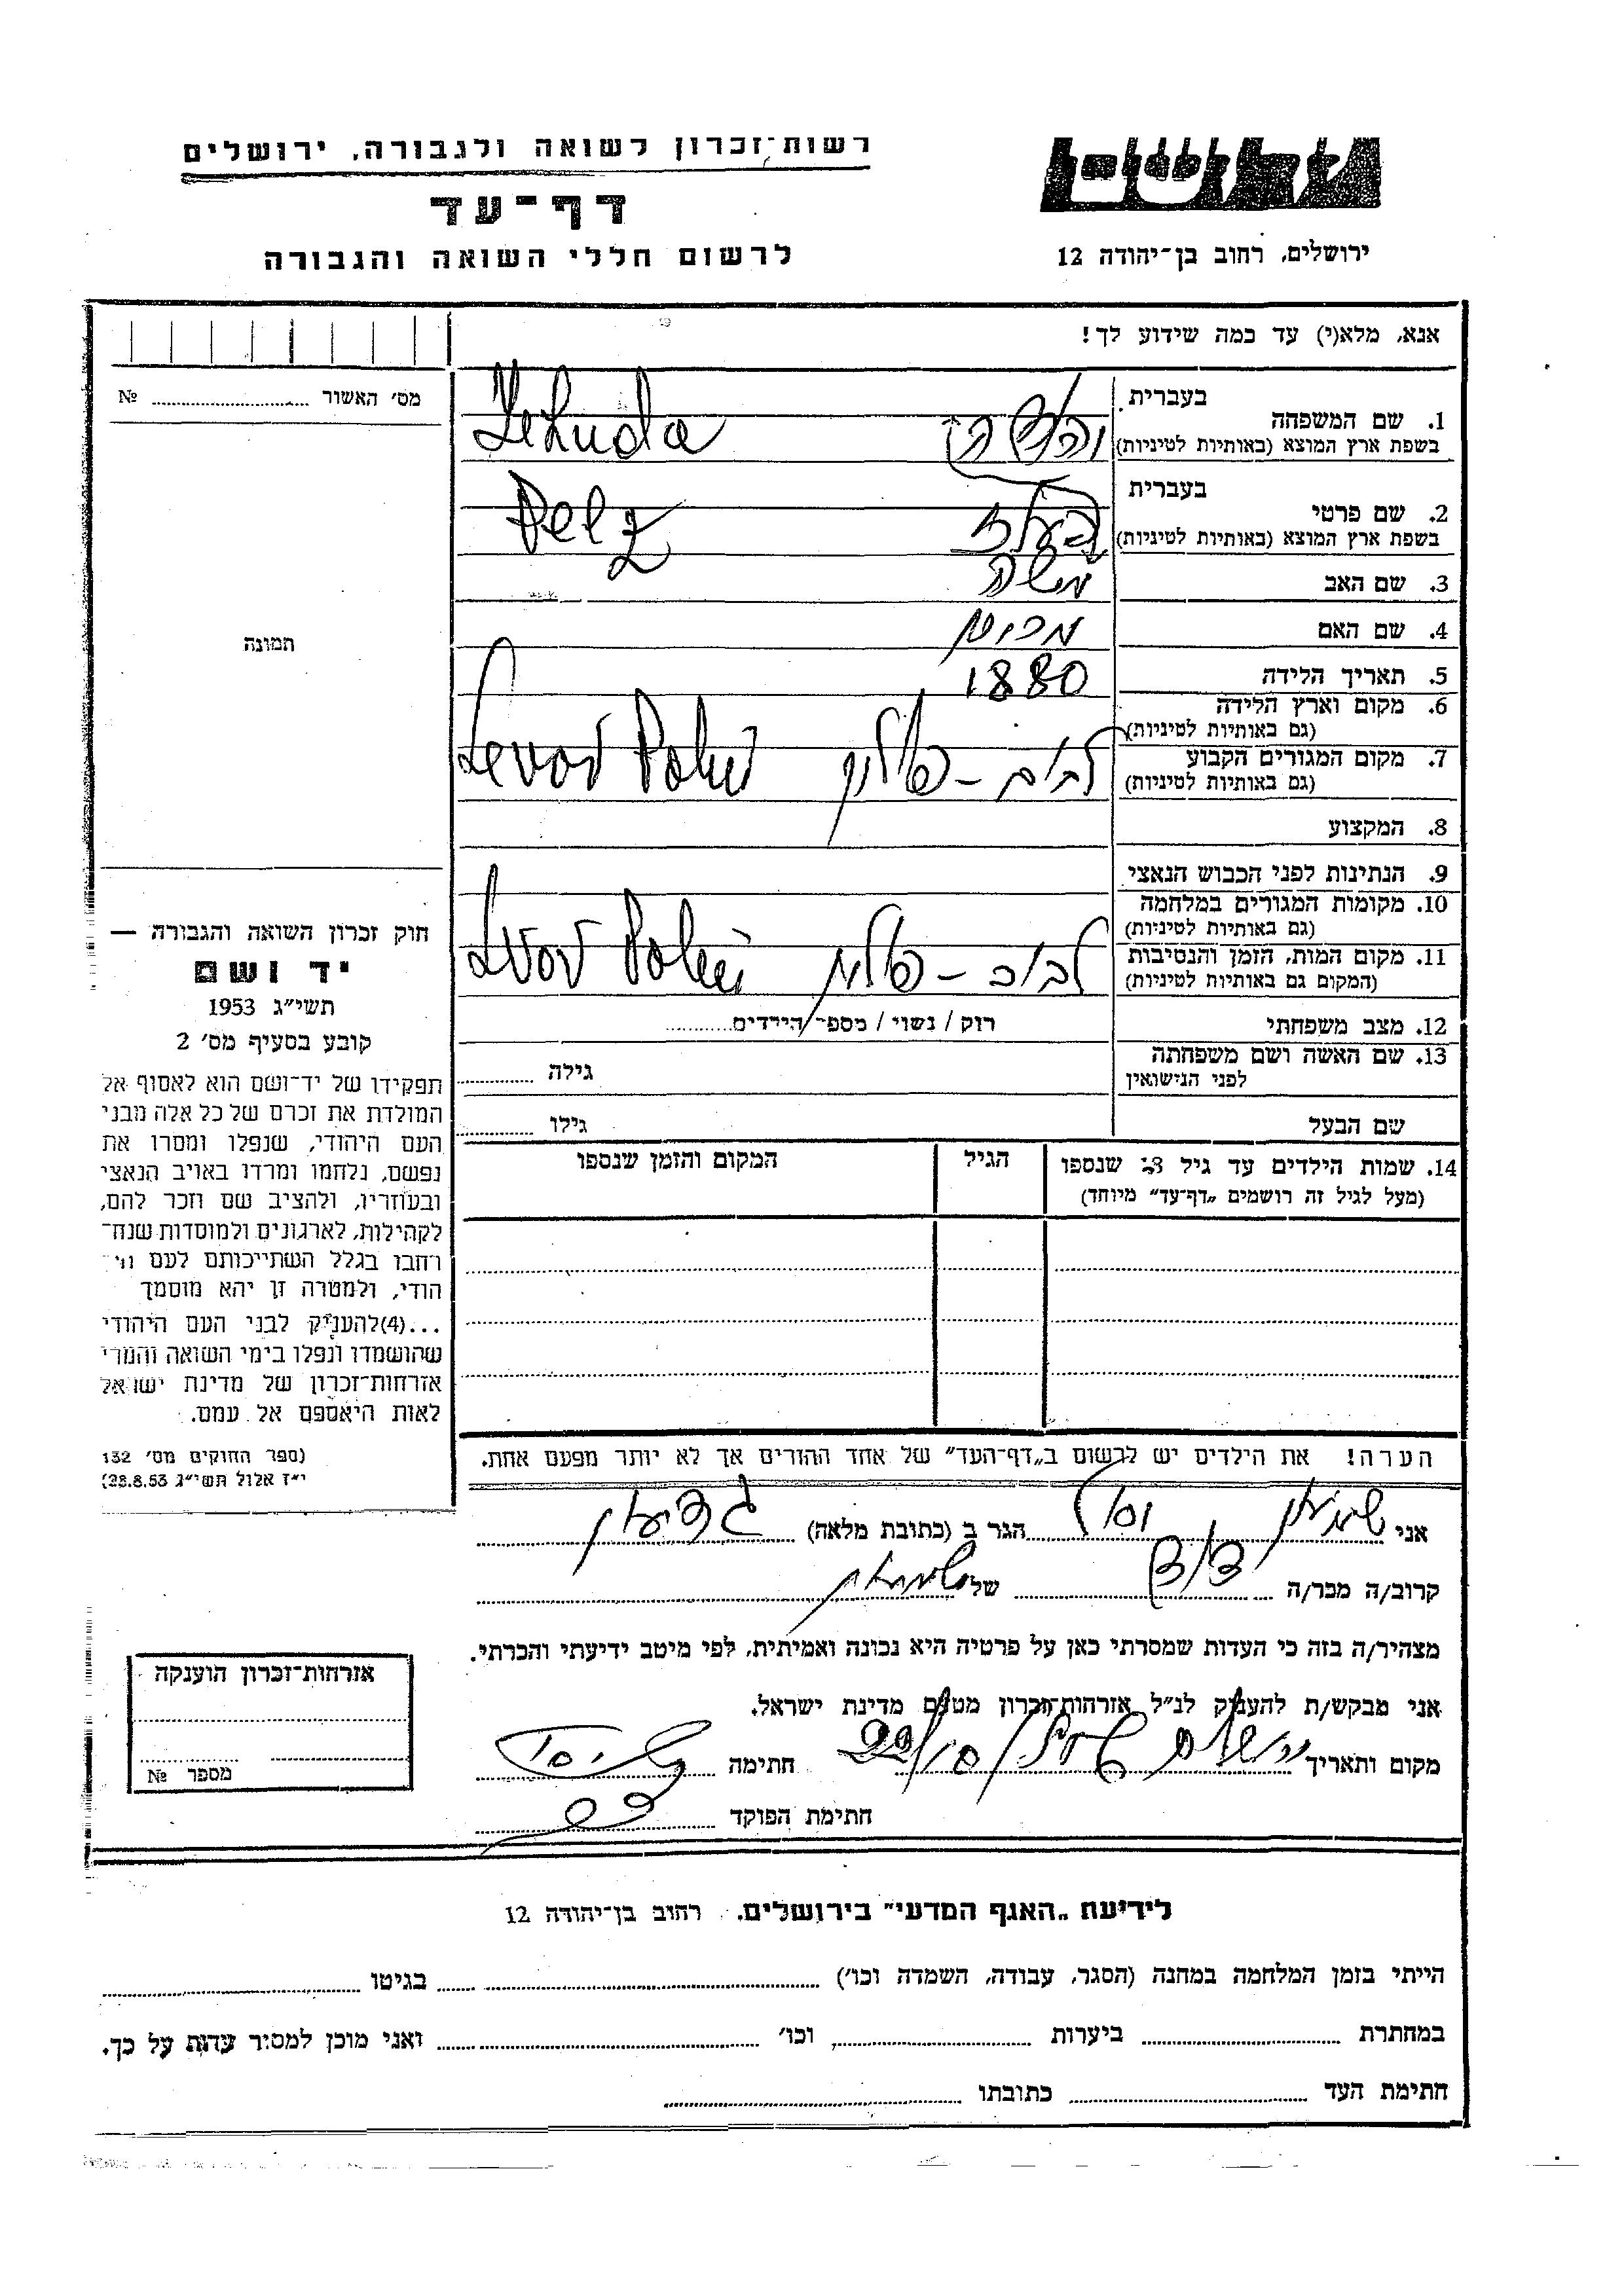 רשות־זכרון לשואה ולגבורה, ירושלים
דף־עד
לרשום חללי השואה והגבורה
ירושלים, רחוב בן־יהודה 12
אנא, מלא(י) עד כמה שידוע לך!
1. שם המשפחה
בעברית
בשפת ארץ המוצא (באותיות לטיניות)
Yehuda
2. שם פרטי
בעברית
בשפת ארץ המוצא (באותיות לטיניות)
Pelz
3. שם האב משה
4. שם האם
5. תאריך הלידה 1880
6. מקום וארץ הלידה
(גם באותיות לטיניות)
7. מקום המגורים הקבוע
(גם באותיות לטיניות)
לבוב - פולין
8. המקצוע
9. הנתינות לפני הכבוש הנאצי
10. מקומות המגורים במלחמה
(גם באותיות לטיניות)
11. מקום המות, הזמן והנסיבות
(המקום גם באותיות לטיניות)
לבוב - פולין
12. מצב משפחתי רוק / נשוי / מספר הילדים
13. שם האשה ושם משפחתה
לפני הנישואין
גילה
שם הבעל גילו
14. שמות הילדים עד גיל 18 שנספו
(מעל לגיל זה רושמים „דף־עד" מיוחד)
הגיל
המקום והזמן שנספו
הערה! את הילדים יש לרשום ב„דף־העד" של אחד ההורים אך לא יותר מפעם אחת.
מס׳ האשור № 
תמונה
חוק זכרון השואה והגבורה —
יד ושם
תשי״ג 1953
קובע בסעיף מס׳ 2
תפקידו של יד־ושם הוא לאסוף אל
המולדת את זכרם של כל אלה מבני
העם היהודי, שנפלו ומסרו את
נפשם, נלחמו ומרדו באויב הנאצי
ובעוזריו, ולהציב שם וזכר להם,
לקהילות, לארגונים ולמוסדות שנח־
רחבו בגלל השתייכותם לעם הי־
הודי, ולמטרה זו יהא מוסמך
...(4)להעניק לבני העם היהודי
שהושמדו ונפלו בימי השואה והמרי
אזרחות־זכרון של מדינת ישראל
לאות היאספם אל עמם.
(ספר החוקים מס׳ 132
י״ז אלול תשי״ג 28.8.53)
אני שמעון הגר ב (כתובת מלאה)
קרוב/ה מכר/ה של
מצהיר/ה בזה כי העדות שמסרתי כאן על פרטיה היא נכונה ואמיתית, לפי מיטב ידיעתי והכרתי.
אני מבקש/ת להעניק לנ״ל אזרחות־זכרון מטעם מדינת ישראל.
מקום ותאריך חתימה
חתימת הפוקד
אזרחות־זכרון הוענקה
מספר №
לידיעת „האגף המדעי" בירושלים, רחוב בן־יהודה 12
הייתי בזמן המלחמה במחנה (הסגר, עבודה, השמדה וכו׳) בגיטו
במחתרת ביערות וכו׳ ואני מוכן למסיר עדות על כך.
חתימת העד כתובתו